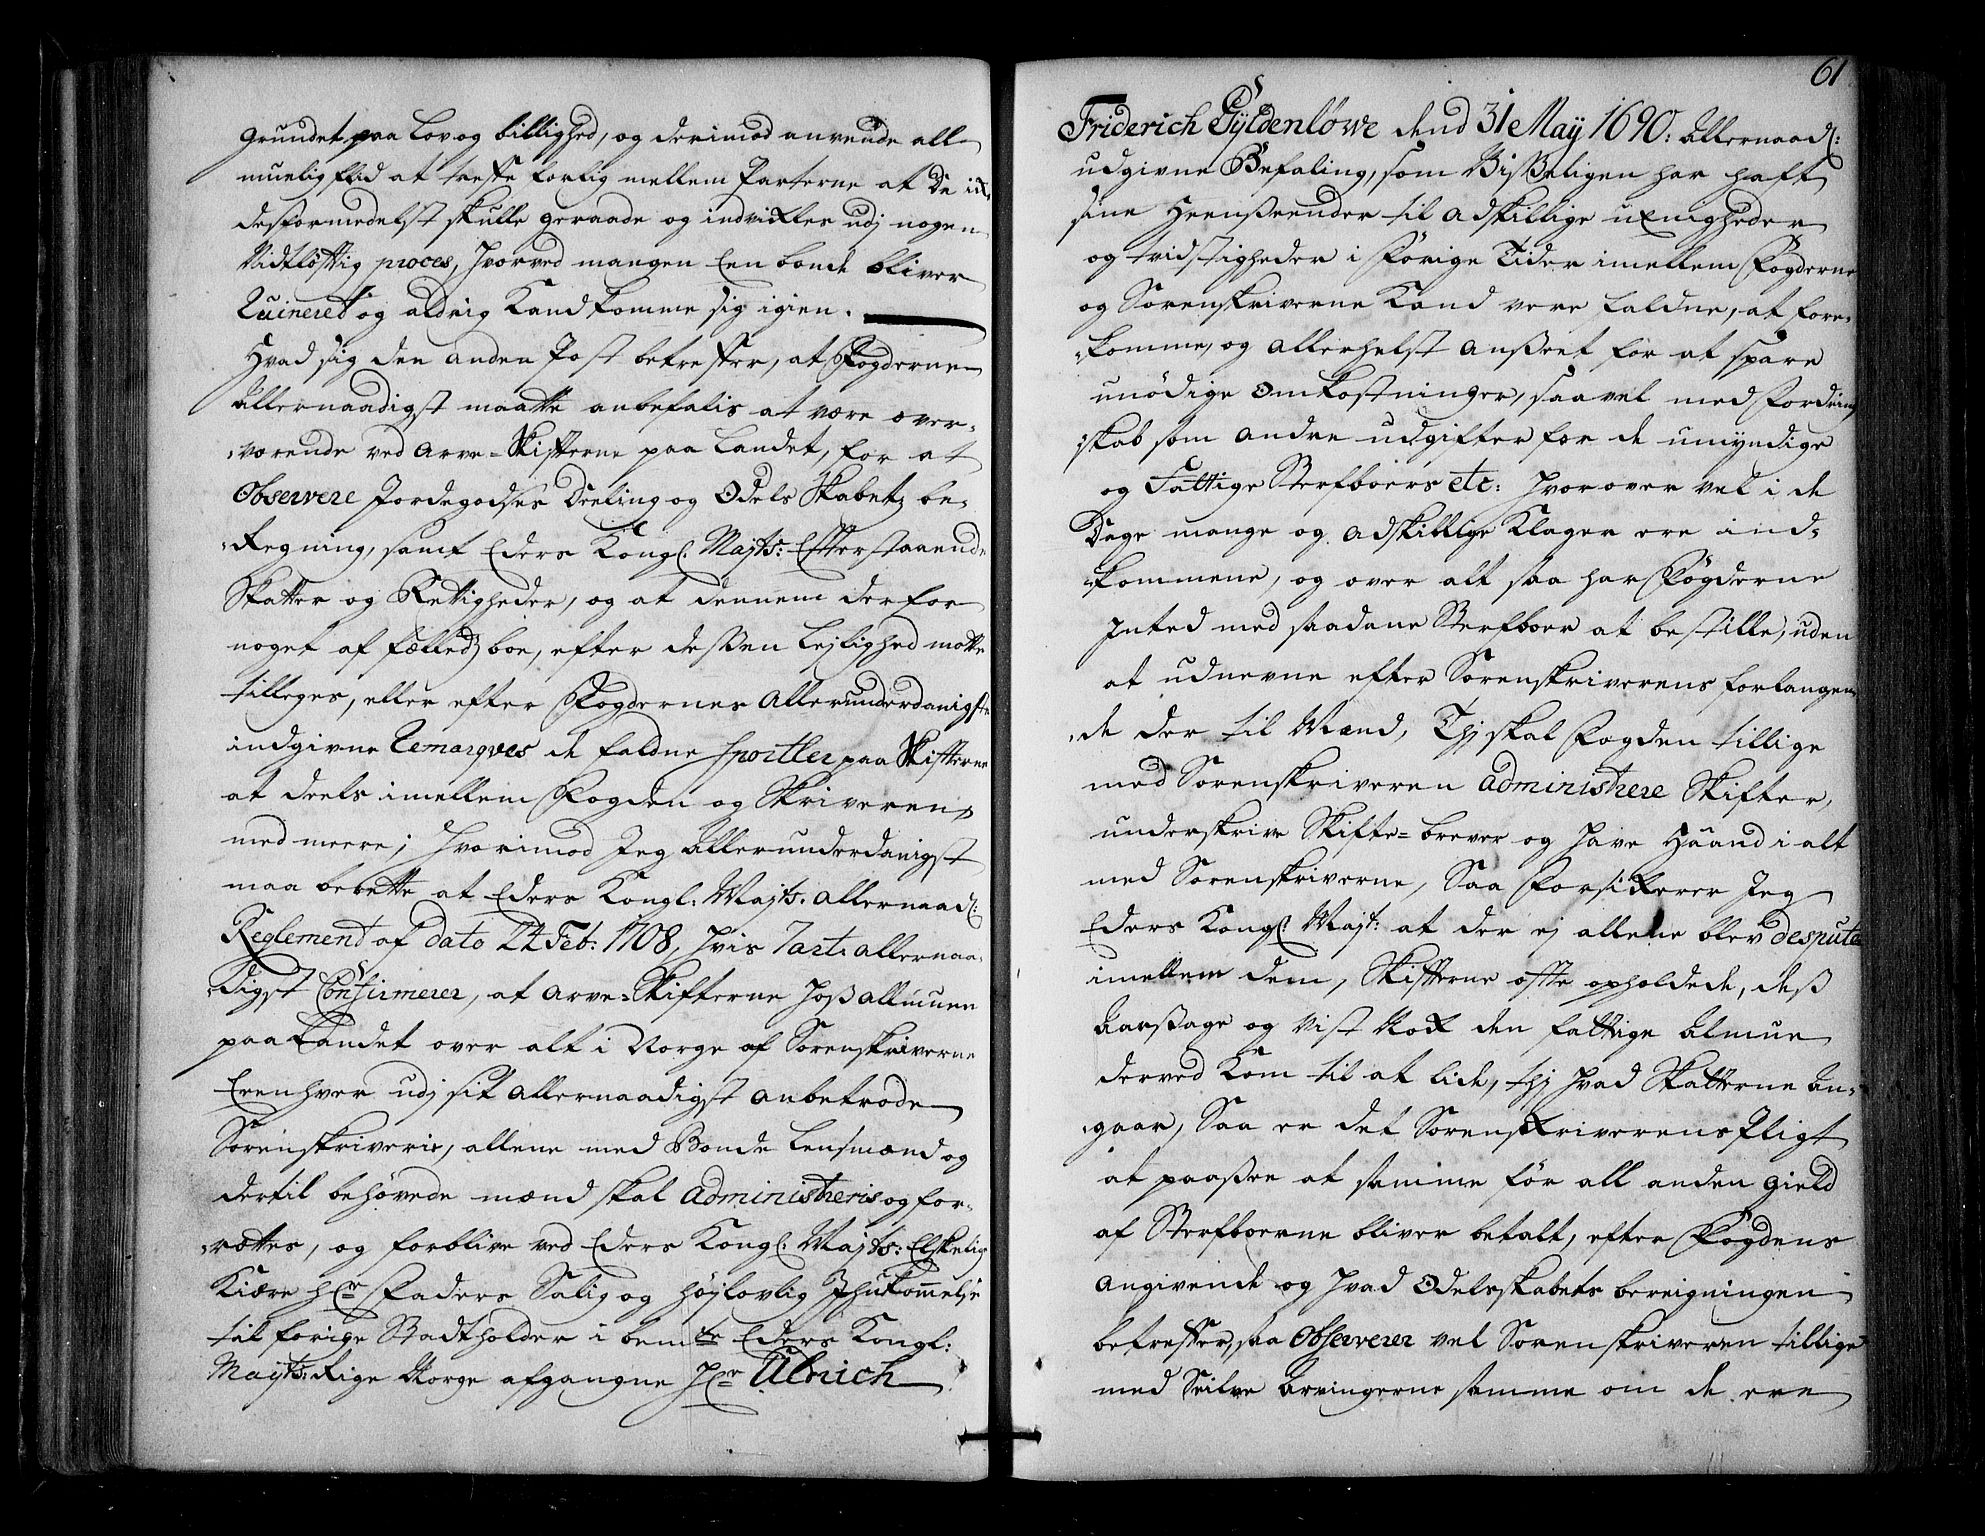 grundet paa Lov og billighed, og derimod anvende all
muelig flid at treffe forlig mellem Parterne at De ick
desformedelst skulle geraade og indvikles udj nogen
Vidtløftig proces, hvorved mangen Een bonde bliver
Ruineret og aldrig Kand komme sig igien.
Hvad sig den anden Post betreffer, at Fogderne
Allernaadigst maatte anbefalis at være over-
værende ved Arve-Skifterne paa Landet, for at
Observere Jordegodses Deeling og Odels Skabetz be-
Regning, samt Eders Kongl: Majts: Efterstaaende
Skatter og Rettigheder, og at dennem derfor
noget af fælledz boe, efter dessen Lejlighed motte
tilleges, eller efter Fogdernes Allerunderdanigste
indgivne Remarqves de faldne sportler paa Skifterne
at deels imellem Fogden og Skriveren,
med meere; Hvorimod Jeg Allerunderdanigst
maa berette at Eders Kongl. Majts. allernaad:
Reglement af dato 24 Feb: 1708, hvis 7 art: allernaa-
digst Confirmerer, at Arve-Skifterne hoß allmuen
paa Landet over alt i Norge af Sorenskriverne
Eenhver udj sit allernaadigst anbetrode
Sorenskriverie, allene med Bonde Lensmænd og
dertil behøvede mænd skal administreris og for-
rettes, og forblive ved Eders Kongl: Majts: Elskelig
Kiære Hr Faders Salig og højlovlig Ihukommelse
til forige Stadtholder i bemte Eders Kongl:
Majts: Rige Norge afgangne Hr Ulrich
61
Friderich Gyldenløwe dend 31 May 1690: Allernaad:
udgivne Befaling, som Visseligen har haft
sine Henseender til adskillige uenigheder
og tvidstigheder i Førige Tider imellem Fogderne
og Sorenskriverne Kand vere faldne, at fore-
komme, og allerhelst anßeet for at spare
unødige Omkostninger, saavel med Fordring
skab som andre udgifter for de umyndige
og Fattige Sterfboers etc: hvorover vel i de
Dage mange og adskillige Klager ere ind-
kommene, og over alt saa har Fogderne
Inted med saadane Sterfboer at bestille, uden
at udnevne efter Sorenskriverens forlangen
de der til Mænd, Thj skal Fogden tillige
med Sorenskriveren administrere Skifter,
underskrive Skifte-brever og have Haand i alt
med Sorenskriverne, Saa Forsikerer Jeg
Eders Kongl: Majt: at der ej allene blev despute
imellem dem, Skifterne ofte opholdede, deß
Aarsage og Vist Nok den fattige Almue
derved Kom til at lide, thj hvad Skatterne an-
gaar, Saa er det Sorenskriverens Pligt
at paaßee at samme før all anden gield
af Sterfboerne bliver betalt, efter Fogdens
angivende og hvad Odelsskabets beregningen
betreffer, saa Observerer vel Sorenskriveren tillige
med Seilve Arvingerne samme om de ere